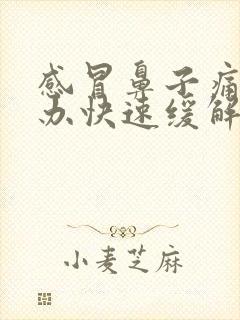 感冒鼻子痛
办快速缓解
小麦芝麻